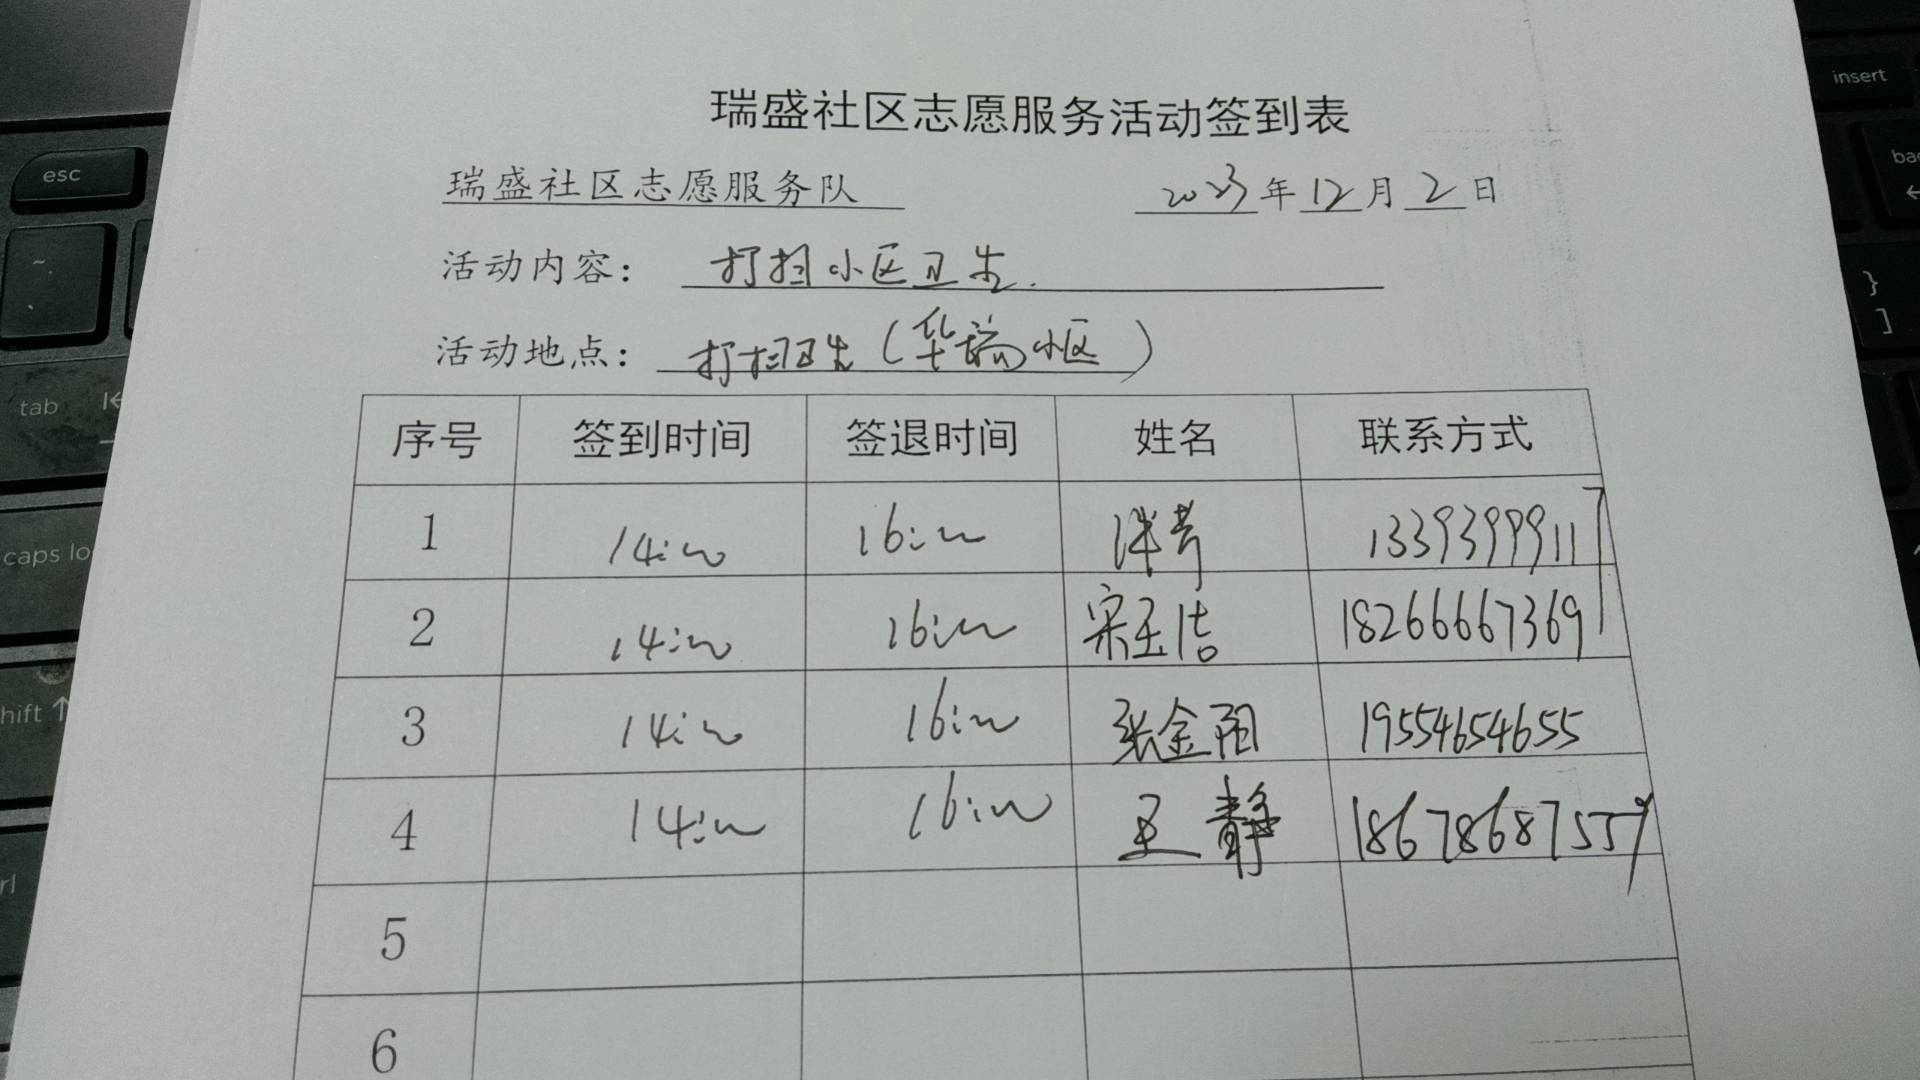 瑞盛社区志愿服务活动签到表
瑞盛社区志愿服务队 2023年12月2日
活动内容: 打扫小区卫生.
活动地点: 打扫卫生(华瑞小区)
序号 签到时间 签退时间 姓名 联系方式
1 14:00 16:00 13393999117
2 14:00 16:00 宋玉洁 18266667369
3 14:00 16:00 张金阳 19554654655
4 14:00 16:00 王静 18678687559
5
6
esc
tab
caps lo
hift
rl
insert
bac
~
`
}
]